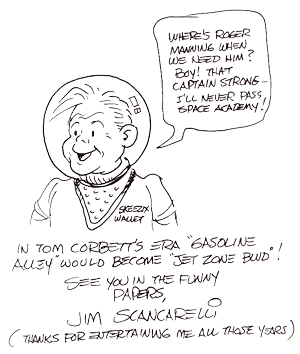 WHERE'S ROGER
MANNING WHEN
WE NEED HIM?
BOY! THAT
CAPTAIN STRONG-
I'LL NEVER PASS,
SPACE ACADEMY!
SKEEZIX
WALLET
IN TOM CORBETT'S ERA "GASOLINE
ALLEY" WOULD BECOME "JET ZONE BLVD"!
SEE YOU IN THE FUNNY
PAPERS,
JIM SCANCARELLI
(THANKS FOR ENTERTAINING ME ALL THOSE YEARS)